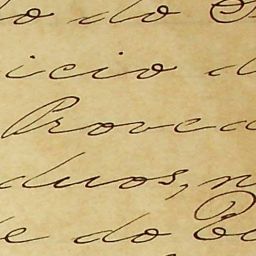 do do
icio d
Proved
duos, n
e do